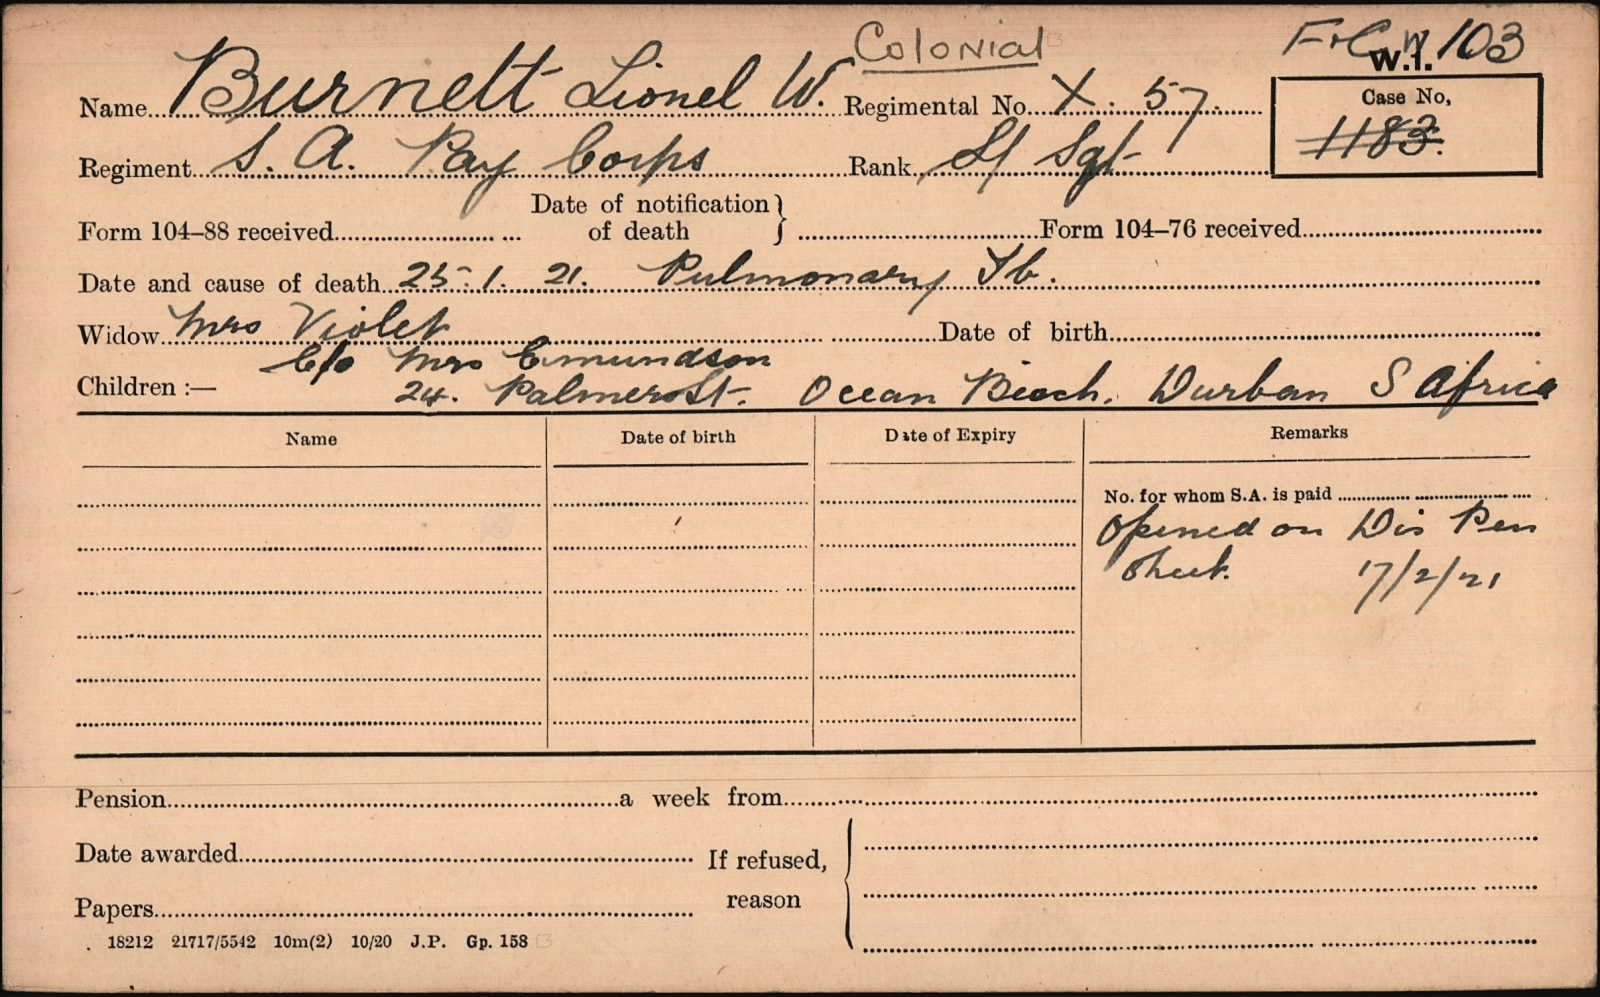 Colonial
F+C W 103
W.1.
Name Burnett Lionel W. Regimental No. X. 57.
Case No,
1183.
Regiment S. A. Pay Corps Rank L/ Sgt
Date of notification
Form 104–88 received of death Form 104–76 received
Date and cause of death 25. 1. 21. Pulmonary Tb.
Widow Mrs Violet Date of birth
C/o Mrs Emundson
Children :—
24. Palmer St. Ocean Beach. Durban S Africa
Name Date of birth Date of Expiry Remarks
No. for whom S.A. is paid
Opened on Dis Pen
Sheet. 17/2/21
Pension a week from
Date awarded If refused,
reason
Papers
18212 21717/5542 10m(2) 10/20 J.P. Gp. 158